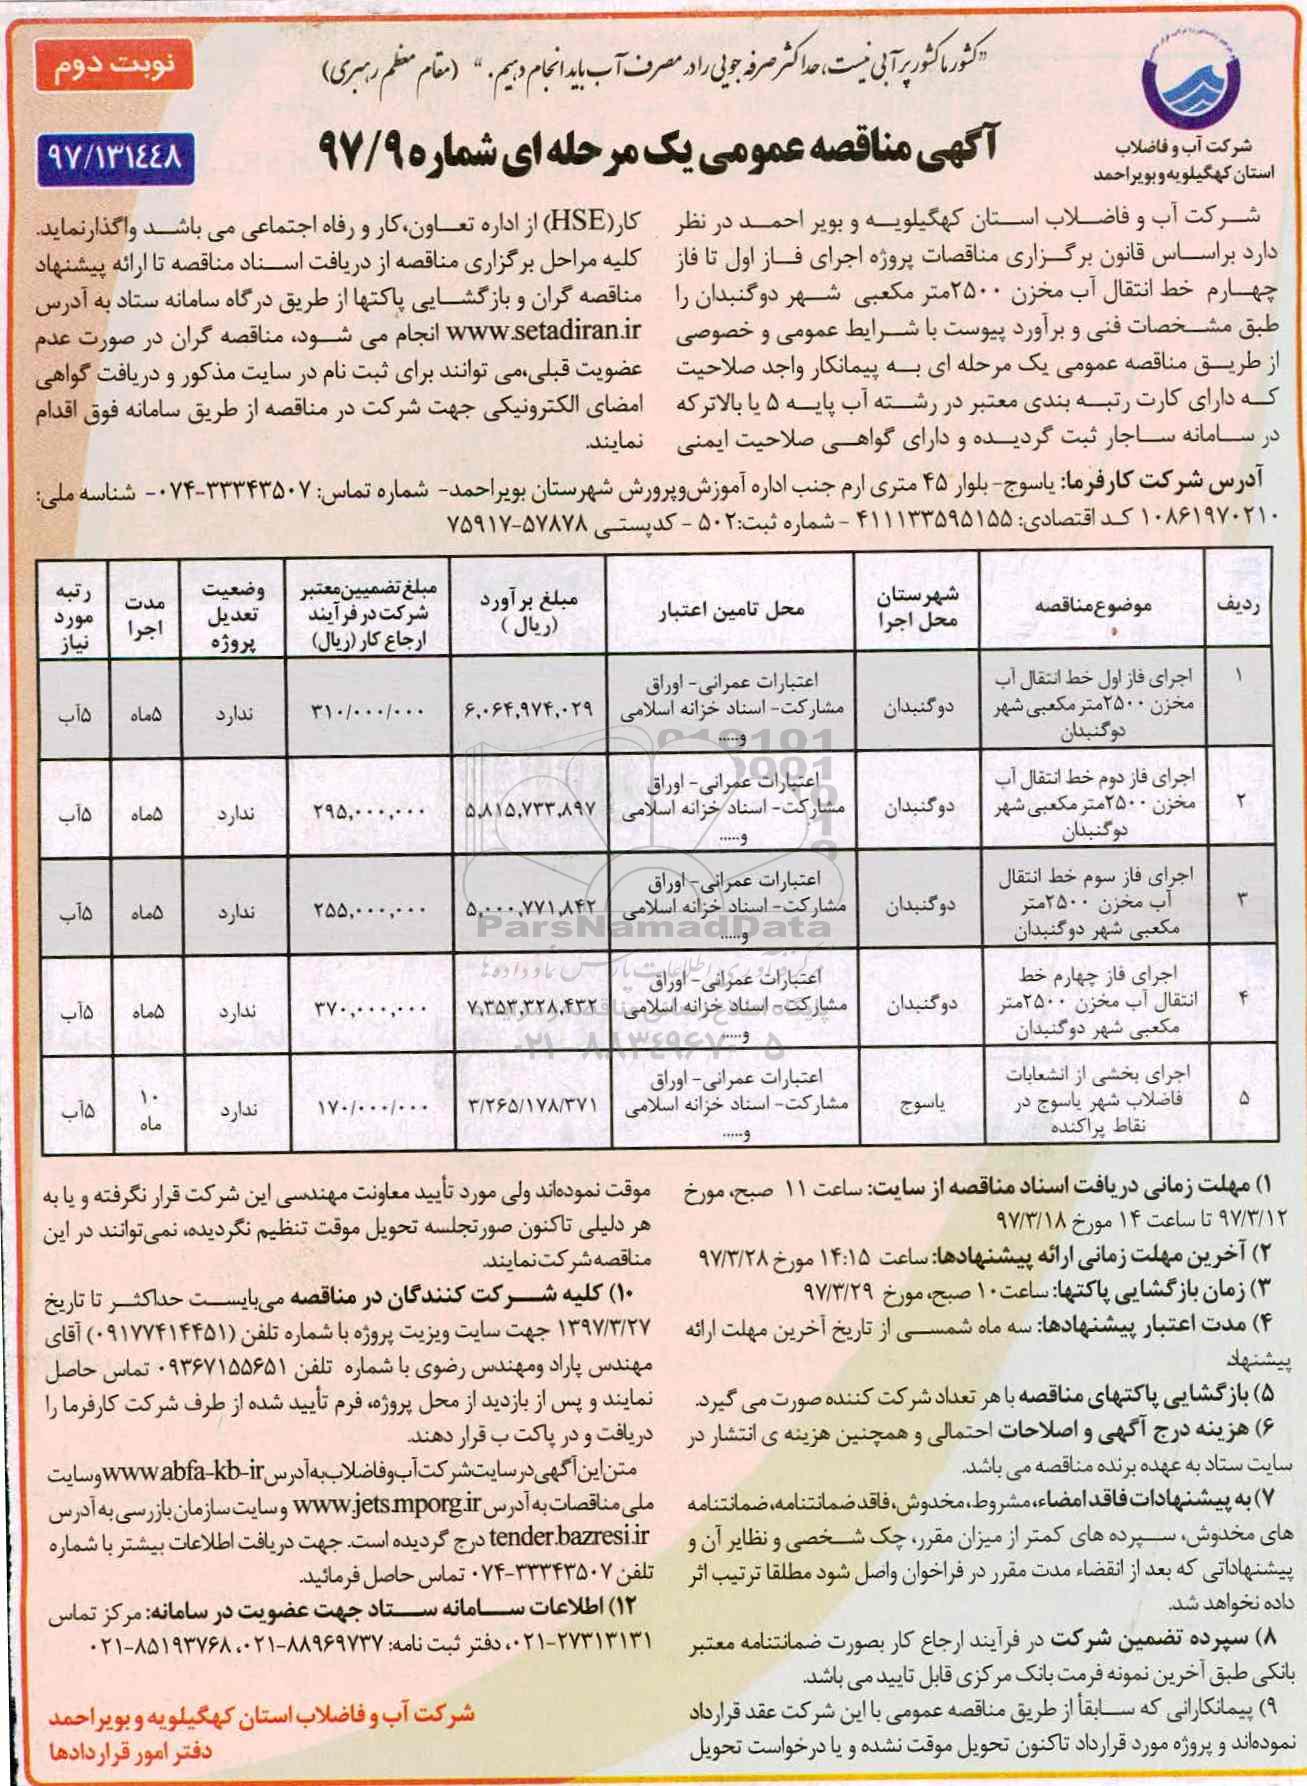 "کشور ما کشور پر آبی نیست، حداکثر صرفه جویی را در مصرف آب باید انجام دهیم." (مقام معظم رهبری)
نوبت دوم
شرکت آب و فاضلاب
استان کهگیلویه و بویراحمد
آگهی مناقصه عمومی یک مرحله ای شماره ۹۷/۹
۹۷/۱۳۱۴۴۸
شرکت آب و فاضلاب استان کهگیلویه و بویر احمد در نظر
دارد براساس قانون برگزاری مناقصات پروژه اجرای فاز اول تا فاز
چهارم خط انتقال آب مخزن ۲۵۰۰متر مکعبی شهر دوگنبدان را
طبق مشخصات فنی و برآورد پیوست با شرایط عمومی و خصوصی
از طریق مناقصه عمومی یک مرحله ای به پیمانکار واجد صلاحیت
که دارای کارت رتبه بندی معتبر در رشته آب پایه ۵ یا بالاتر که
در سامانه ساجار ثبت گردیده و دارای گواهی صلاحیت ایمنی
کار(HSE) از اداره تعاون،کار و رفاه اجتماعی می باشد واگذارنماید.
کلیه مراحل برگزاری مناقصه از دریافت اسناد مناقصه تا ارائه پیشنهاد
مناقصه گران و بازگشایی پاکتها از طریق درگاه سامانه ستاد به آدرس
www.setadiran.ir انجام می شود، مناقصه گران در صورت عدم
عضویت قبلی،می توانند برای ثبت نام در سایت مذکور و دریافت گواهی
امضای الکترونیکی جهت شرکت در مناقصه از طریق سامانه فوق اقدام
نمایند.
آدرس شرکت کارفرما: یاسوج- بلوار ۴۵ متری ارم جنب اداره آموزش‌وپرورش شهرستان بویراحمد- شماره تماس: ۳۳۳۴۳۵۰۷-۰۷۴- شناسه ملی:
۱۰۸۶۱۹۷۰۲۱۰ کد اقتصادی: ۴۱۱۱۳۳۵۹۵۱۵۵ - شماره ثبت:۵۰۲ - کدپستی ۵۷۸۷۸-۷۵۹۱۷
ردیف | موضوع مناقصه | شهرستان محل اجرا | محل تامین اعتبار | مبلغ برآورد (ریال) | مبلغ تضمیین معتبر شرکت در فرآیند ارجاع کار (ریال) | وضعیت تعدیل پروژه | مدت اجرا | رتبه مورد نیاز
۱ | اجرای فاز اول خط انتقال آب مخزن ۲۵۰۰متر مکعبی شهر دوگنبدان | دوگنبدان | اعتبارات عمرانی- اوراق مشارکت- اسناد خزانه اسلامی و..... | ۶,۰۶۴,۹۷۴,۰۲۹ | ۳۱۰/۰۰۰/۰۰۰ | ندارد | ۵ماه | ۵آب
۲ | اجرای فاز دوم خط انتقال آب مخزن ۲۵۰۰متر مکعبی شهر دوگنبدان | دوگنبدان | اعتبارات عمرانی- اوراق مشارکت- اسناد خزانه اسلامی و..... | ۵,۸۱۵,۷۳۳,۸۹۷ | ۲۹۵,۰۰۰,۰۰۰ | ندارد | ۵ماه | ۵آب
۳ | اجرای فاز سوم خط انتقال آب مخزن ۲۵۰۰متر مکعبی شهر دوگنبدان | دوگنبدان | اعتبارات عمرانی- اوراق مشارکت- اسناد خزانه اسلامی و..... | ۵,۰۰۰,۷۷۱,۸۴۲ | ۲۵۵,۰۰۰,۰۰۰ | ندارد | ۵ماه | ۵آب
۴ | اجرای فاز چهارم خط انتقال آب مخزن ۲۵۰۰متر مکعبی شهر دوگنبدان | دوگنبدان | اعتبارات عمرانی- اوراق مشارکت- اسناد خزانه اسلامی و..... | ۷,۳۵۳,۳۲۸,۴۳۲ | ۳۷۰,۰۰۰,۰۰۰ | ندارد | ۵ماه | ۵آب
۵ | اجرای بخشی از انشعابات فاضلاب شهر یاسوج در نقاط پراکنده | یاسوج | اعتبارات عمرانی- اوراق مشارکت- اسناد خزانه اسلامی و..... | ۳/۲۶۵/۱۷۸/۳۷۱ | ۱۷۰/۰۰۰/۰۰۰ | ندارد | ۱۰ ماه | ۵آب
ParsNamadData
۰۲۱-۸۸۳۴۹۶۷۰-۵
۱) مهلت زمانی دریافت اسناد مناقصه از سایت: ساعت ۱۱ صبح، مورخ
۹۷/۳/۱۲ تا ساعت ۱۴ مورخ ۹۷/۳/۱۸
۲) آخرین مهلت زمانی ارائه پیشنهادها: ساعت ۱۴:۱۵ مورخ ۹۷/۳/۲۸
۳) زمان بازگشایی پاکتها: ساعت۱۰ صبح، مورخ ۹۷/۳/۲۹
۴) مدت اعتبار پیشنهادها: سه ماه شمسی از تاریخ آخرین مهلت ارائه
پیشنهاد.
۵) بازگشایی پاکتهای مناقصه با هر تعداد شرکت کننده صورت می گیرد.
۶) هزینه درج آگهی و اصلاحات احتمالی و همچنین هزینه ی انتشار در
سایت ستاد به عهده برنده مناقصه می باشد.
۷) به پیشنهادات فاقد امضاء، مشروط، مخدوش، فاقد ضمانتنامه، ضمانتنامه
های مخدوش، سپرده های کمتر از میزان مقرر، چک شخصی و نظایر آن و
پیشنهاداتی که بعد از انقضاء مدت مقرر در فراخوان واصل شود مطلقا ترتیب اثر
داده نخواهد شد.
۸) سپرده تضمین شرکت در فرآیند ارجاع کار بصورت ضمانتنامه معتبر
بانکی طبق آخرین نمونه فرمت بانک مرکزی قابل تایید می باشد.
۹) پیمانکارانی که سابقاً از طریق مناقصه عمومی با این شرکت عقد قرارداد
نموده‌اند و پروژه مورد قرارداد تاکنون تحویل موقت نشده و یا درخواست تحویل
موقت نموده‌اند ولی مورد تأیید معاونت مهندسی این شرکت قرار نگرفته و یا به
هر دلیلی تاکنون صورتجلسه تحویل موقت تنظیم نگردیده، نمی‌توانند در این
مناقصه شرکت نمایند.
۱۰) کلیه شرکت کنندگان در مناقصه می‌بایست حداکثر تا تاریخ
۱۳۹۷/۳/۲۷ جهت سایت ویزیت پروژه با شماره تلفن (۰۹۱۷۷۴۱۴۴۵۱) آقای
مهندس پاراد ومهندس رضوی با شماره تلفن ۰۹۳۶۷۱۵۵۶۵۱ تماس حاصل
نمایند و پس از بازدید از محل پروژه، فرم تأیید شده از طرف شرکت کارفرما را
دریافت و در پاکت ب قرار دهند.
متن این آگهی در سایت شرکت آب و فاضلاب به آدرس www.abfa-kb-ir و سایت
ملی مناقصات به آدرس www.jets.mporg.ir و سایت سازمان بازرسی به آدرس
tender.bazresi.ir درج گردیده است. جهت دریافت اطلاعات بیشتر با شماره
تلفن ۳۳۳۴۳۵۰۷-۰۷۴ تماس حاصل فرمائید.
۱۲) اطلاعات سامانه ستاد جهت عضویت در سامانه: مرکز تماس
۲۷۳۱۳۱۳۱-۰۲۱، دفتر ثبت نامه: ۸۸۹۶۹۷۳۷-۰۲۱، ۸۵۱۹۳۷۶۸-۰۲۱
شرکت آب و فاضلاب استان کهگیلویه و بویراحمد
دفتر امور قراردادها